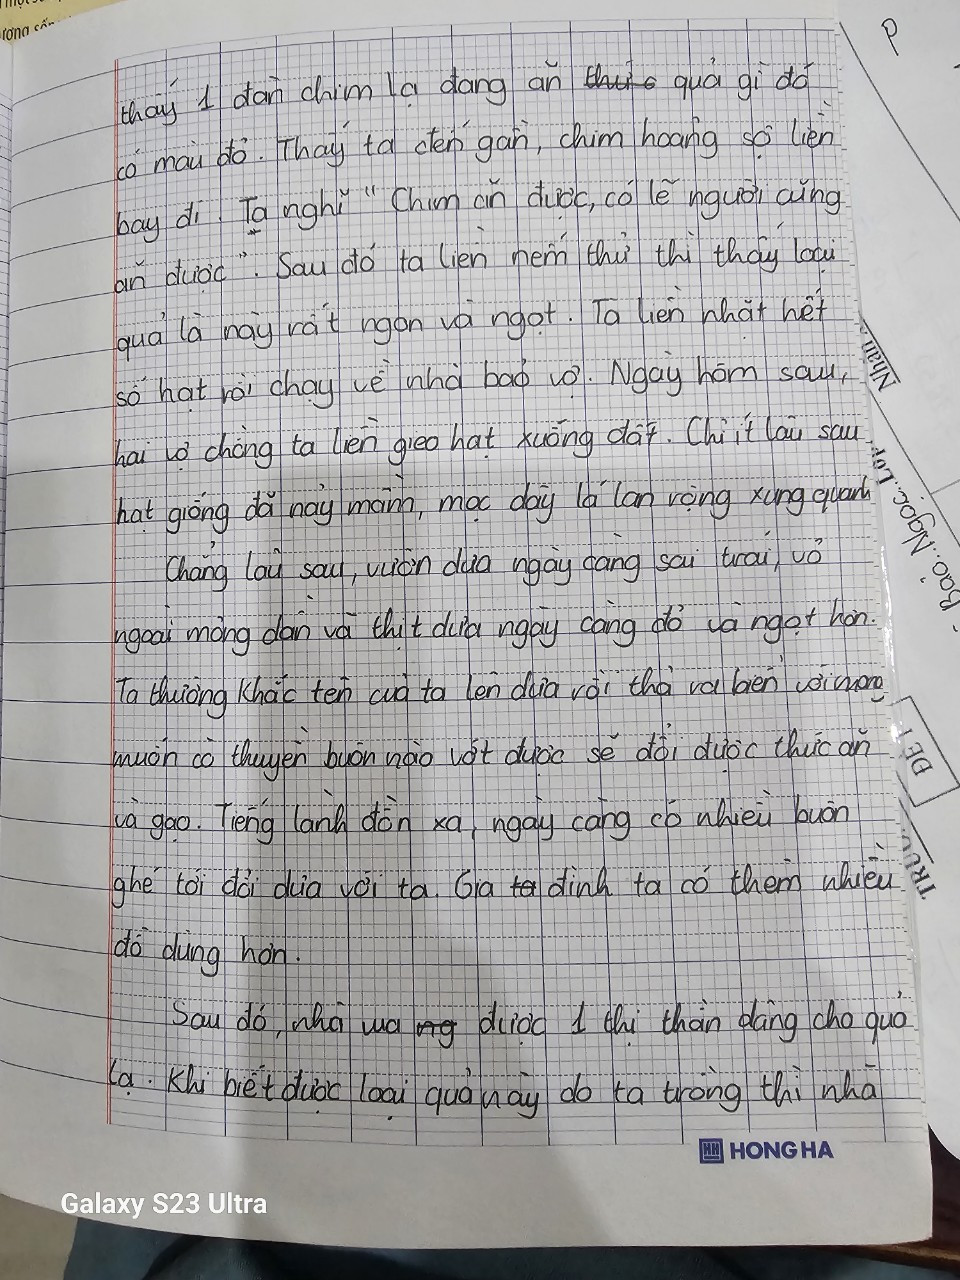 ương sốn
thấy 1 đàn chim lạ đang ăn thức quả gì đó
có màu đỏ. Thấy ta đến gần, chim hoảng sợ liền
bay đi. Ta nghĩ "Chim ăn được, có lẽ người cũng
ăn được". Sau đó ta liền nếm thử thì thấy loại
quả lạ này rất ngon và ngọt. Ta liền nhặt hết
số hạt rồi chạy về nhà bảo vợ. Ngày hôm sau,
hai vợ chồng ta liền gieo hạt xuống đất. Chỉ ít lâu sau
hạt giống đã nảy mầm, mọc dây lá lan rộng xung quanh
Chẳng lâu sau, vườn dưa ngày càng sai trái, vỏ
ngoài mỏng dần và thịt dưa ngày càng đỏ và ngọt hơn.
Ta thường khắc tên của ta lên dưa rồi thả ra biển với mong
muốn có thuyền buôn nào vớt được sẽ đổi được thức ăn
và gạo. Tiếng lành đồn xa, ngày càng có nhiều buôn
ghé tới đổi dưa với ta. Gia ta đình ta có thêm nhiều
đồ dùng hơn.
Sau đó, nhà vua ng được 1 thị thần dâng cho quả
lạ. Khi biết được loại quả này do ta trồng thì nhà
HONG HA
Nhận
Bảo Ngọc. Lớp
ĐỀ
TRƯỜ
Galaxy S23 Ultra